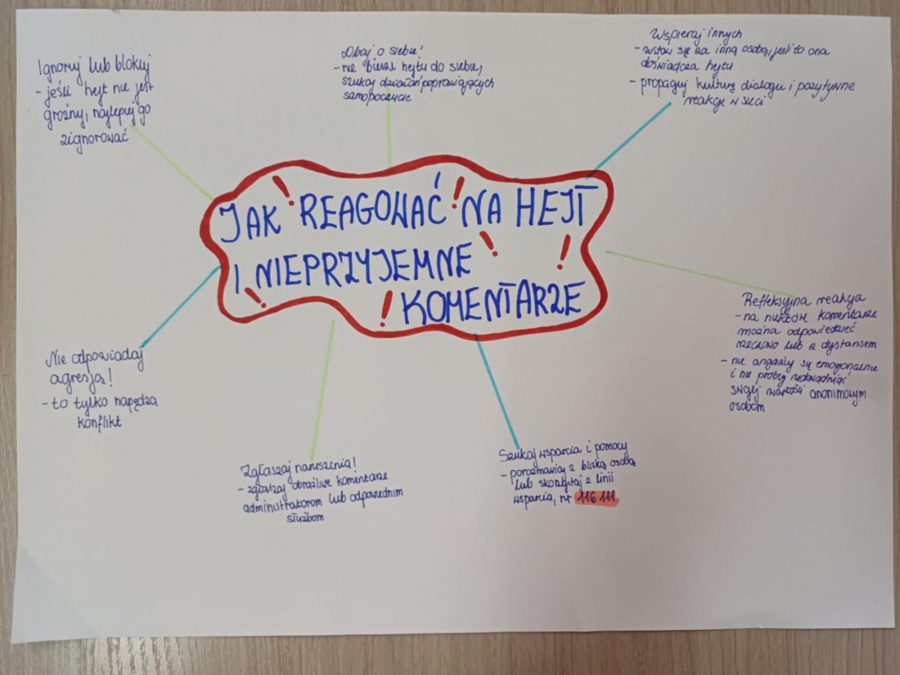 JAK REAGOWAĆ NA HEJT
I NIEPRZYJEMNE
KOMENTARZE
Ignoruj lub blokuj
- jeśli hejt nie jest
groźny, najlepiej go
zignorować
Dbaj o siebie!
- nie bierz hejtu do siebie,
szukaj działań poprawiających
samopoczucie
Wspieraj innych
- wstaw się za inną osobą, jeśli to ona
doświadcza hejtu
- propaguj kulturę dialogu i pozytywne
reakcje w sieci
Refleksyjna reakcja
- na niektóre komentarze
można odpowiedzieć
rzeczowo lub z dystansem
- nie angażuj się emocjonalnie
i nie próbuj udowadniać
swojej wartości anonimowym
osobom
Szukaj wsparcia i pomocy
- porozmawiaj z bliską osobą
lub skorzystaj z linii
wsparcia, nr 116 111
Zgłaszaj naruszenia!
- zgłaszaj obraźliwe komentarze
administratorom lub odpowiednim
służbom
Nie odpowiadaj
agresją!
- to tylko napędza
konflikt